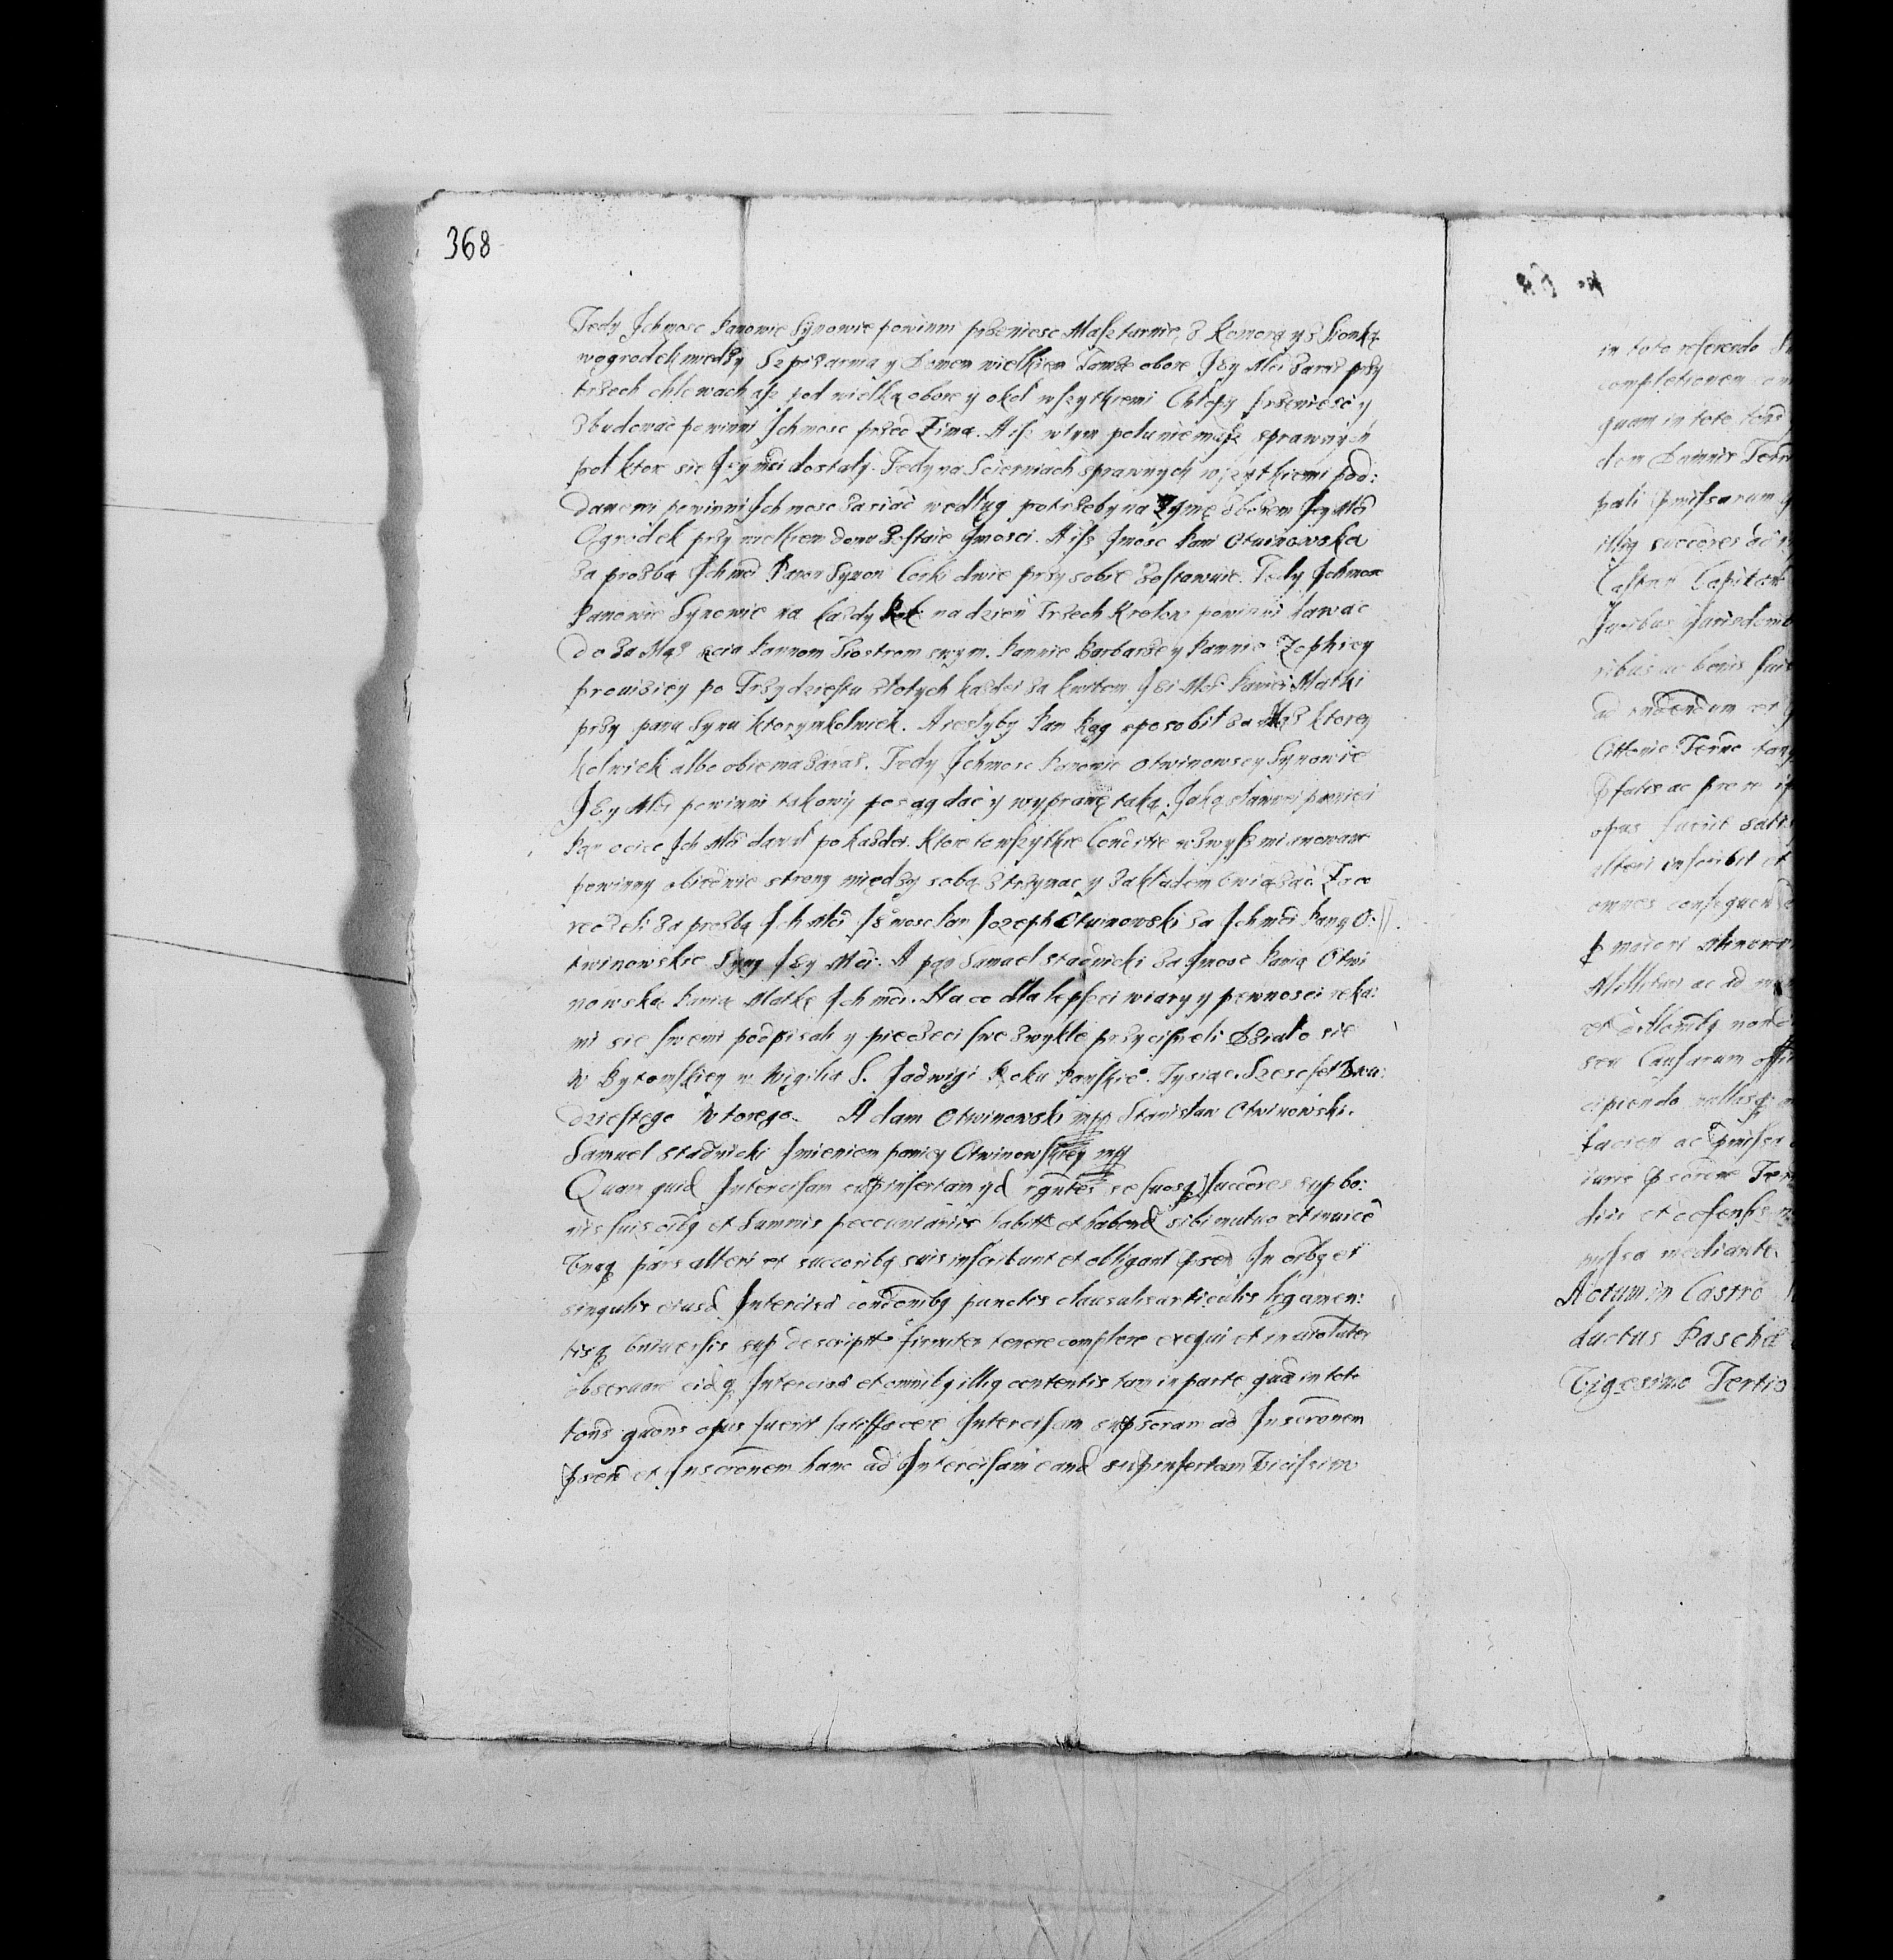 368
Tedy Ichmosc Panowie Synowie powinni przeniesc Masztarnie, z Komorą y z Sionką
wogrodek miedzy Szpizarnia y Domem wielkiem Tamze obore Jey Mci zaraz przy
trzech chlewach asz pod wielką obore y okoł wszytkiemi Chłopy przeniesć y
zbudować powinni Ichmosc przed Zimą. A isz wtym polu niemasz sprawnych
pol ktore sie Jeymci dostały. Tedy na Scierniach sprawnych wszytkiemi pod:
danemi powinni Ichmosc zasiać według potrzeby na zymę zbozem Jey Mci
Ogrodek przy wielkiem domu zostaie Jmosci. A isz Jmosc Pani Otwinowska
za prozbą Ichmci Panow Synow Corki dwie przy sobie zostawuie. Tedy Ichmosc
Panowie Synowie na kazdy Rok na dzien Trzech Krolow powinni dawac
do za Mąz scia Pannom Siostrom swym. Pannie Barbarze y Pannie Zophiey
prouisiey po Trzydziestu złotych kazdei za kwitem Jei Mci Paniei Matki
przy panu Synu ktorymkolwiek. A iesliby Pan Bąg sposobił za Mąz ktorey
kolwiek albo obiema zaraz. Tedy Ichmosc Panowie Otwinowscy Synowie
Jey Mci powinni takowy posąg dać y wyprawę taką. Jaką starszei paniei
Pan ociec Ich Mci dawał po kazdei. Ktore to wszytkie Conditie wzwysz mianowane
powinny obiedwie strony między sobą ztrzymac y zakładem związać. Za co
reczeli za prozbą Ich Mci Je mosc Pan Jozeph Otwinowski za Ichmci Pany O:
twinowskie Syny Jey Mci. A pan Samuel Stadnicki za Jmosc Panią Otwi
nowską Panią Matkę Ichmci. Na co dla lepszei wiary y pewnosci ręka:
mi sie swemi podpisali y pieczęci swe zwykłe przycisneli Działo sie
w Bytomskiey w Wigilia S. Jadwigi Roku Panskieo. Tysiąc. Szescset Dwu:
dziestego Wtorego. Adam Otwinowski mpp Stanisław Otwinowski.
Samuel Stadnicki Imieniem paniey Otwinowskiey mpp
Quam quid Intercisam supinsertam yd rgntes se suosq succores sup bo:
nis suis oibq et Summis peccuniariis habitt et habend sibi mutuo et inuicē
Vnaq pars alteri et succoribq suis inscribunt et obligant psen In oibq et
singulis eiusd Intercisae condonibq punctis clausulis articulis ligamen:
tisq vniuersis sup descriptt firmiter tenere complere exequi et inuiolabiter
obseruare eidq Intercisae et omnibq illiq contentis tam in parte quā in toto
tons quons opus fuerit satisfacere Intercisam supscram ad Inscronem
psen et Inscronem hanc ad Intercisam eand supinsertam Vicissim
in toto referendo
completionem
quam in toto
dem Damnis Terr
pati pmissarum
illiq succores ad
Castren Capitan
Juribus Jurisdoni
ribus ac bonis
ad
Cittonie Terno
pfatis ac pro
opus fuerit satis
alteri inscribit et
omnes consequend
maiori Minori
Militari ac ad
seu Causarum offi
cipiendo nullasq
facien ac pmissa
iure
et defensis
missa mediante.
Actum in Castro
ductus Paschae
Vigesimo Tertio